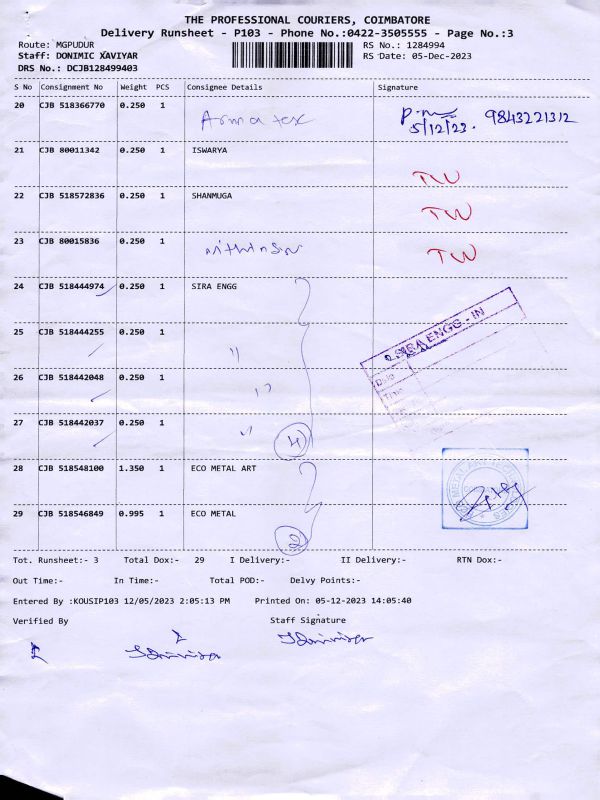 THE PROFESSIONAL COURIERS, COIMBATORE
Delivery Runsheet - P103 - Phone No.:0422-3505555 - Page No.:3
Route: MGPUDUR RS No.: 1284994
Staff: DONIMIC XAVIYAR RS Date: 05-Dec-2023
DRS No.: DCJB128499403
S No Consignment No Weight PCS Consignee Details Signature
20 CJB 518366770 0.250 1 9843221312
5/12/23.
21 CJB 80011342 0.250 1 ISWARYA TW
22 CJB 518572836 0.250 1 SHANMUGA TW
23 CJB 80015836 0.250 1 TW
24 CJB 518444974 0.250 1 SIRA ENGG
SIRA ENGG - IN
Date
Time
25 CJB 518444255 0.250 1 "
26 CJB 518442048 0.250 1 "
27 CJB 518442037 0.250 1 " 4
28 CJB 518548100 1.350 1 ECO METAL ART
29 CJB 518546849 0.995 1 ECO METAL
2
Tot. Runsheet:- 3 Total Dox:- 29 I Delivery:- II Delivery:- RTN Dox:-
Out Time:- In Time:- Total POD:- Delvy Points:-
Entered By :KOUSIP103 12/05/2023 2:05:13 PM Printed On: 05-12-2023 14:05:40
Verified By Staff Signature